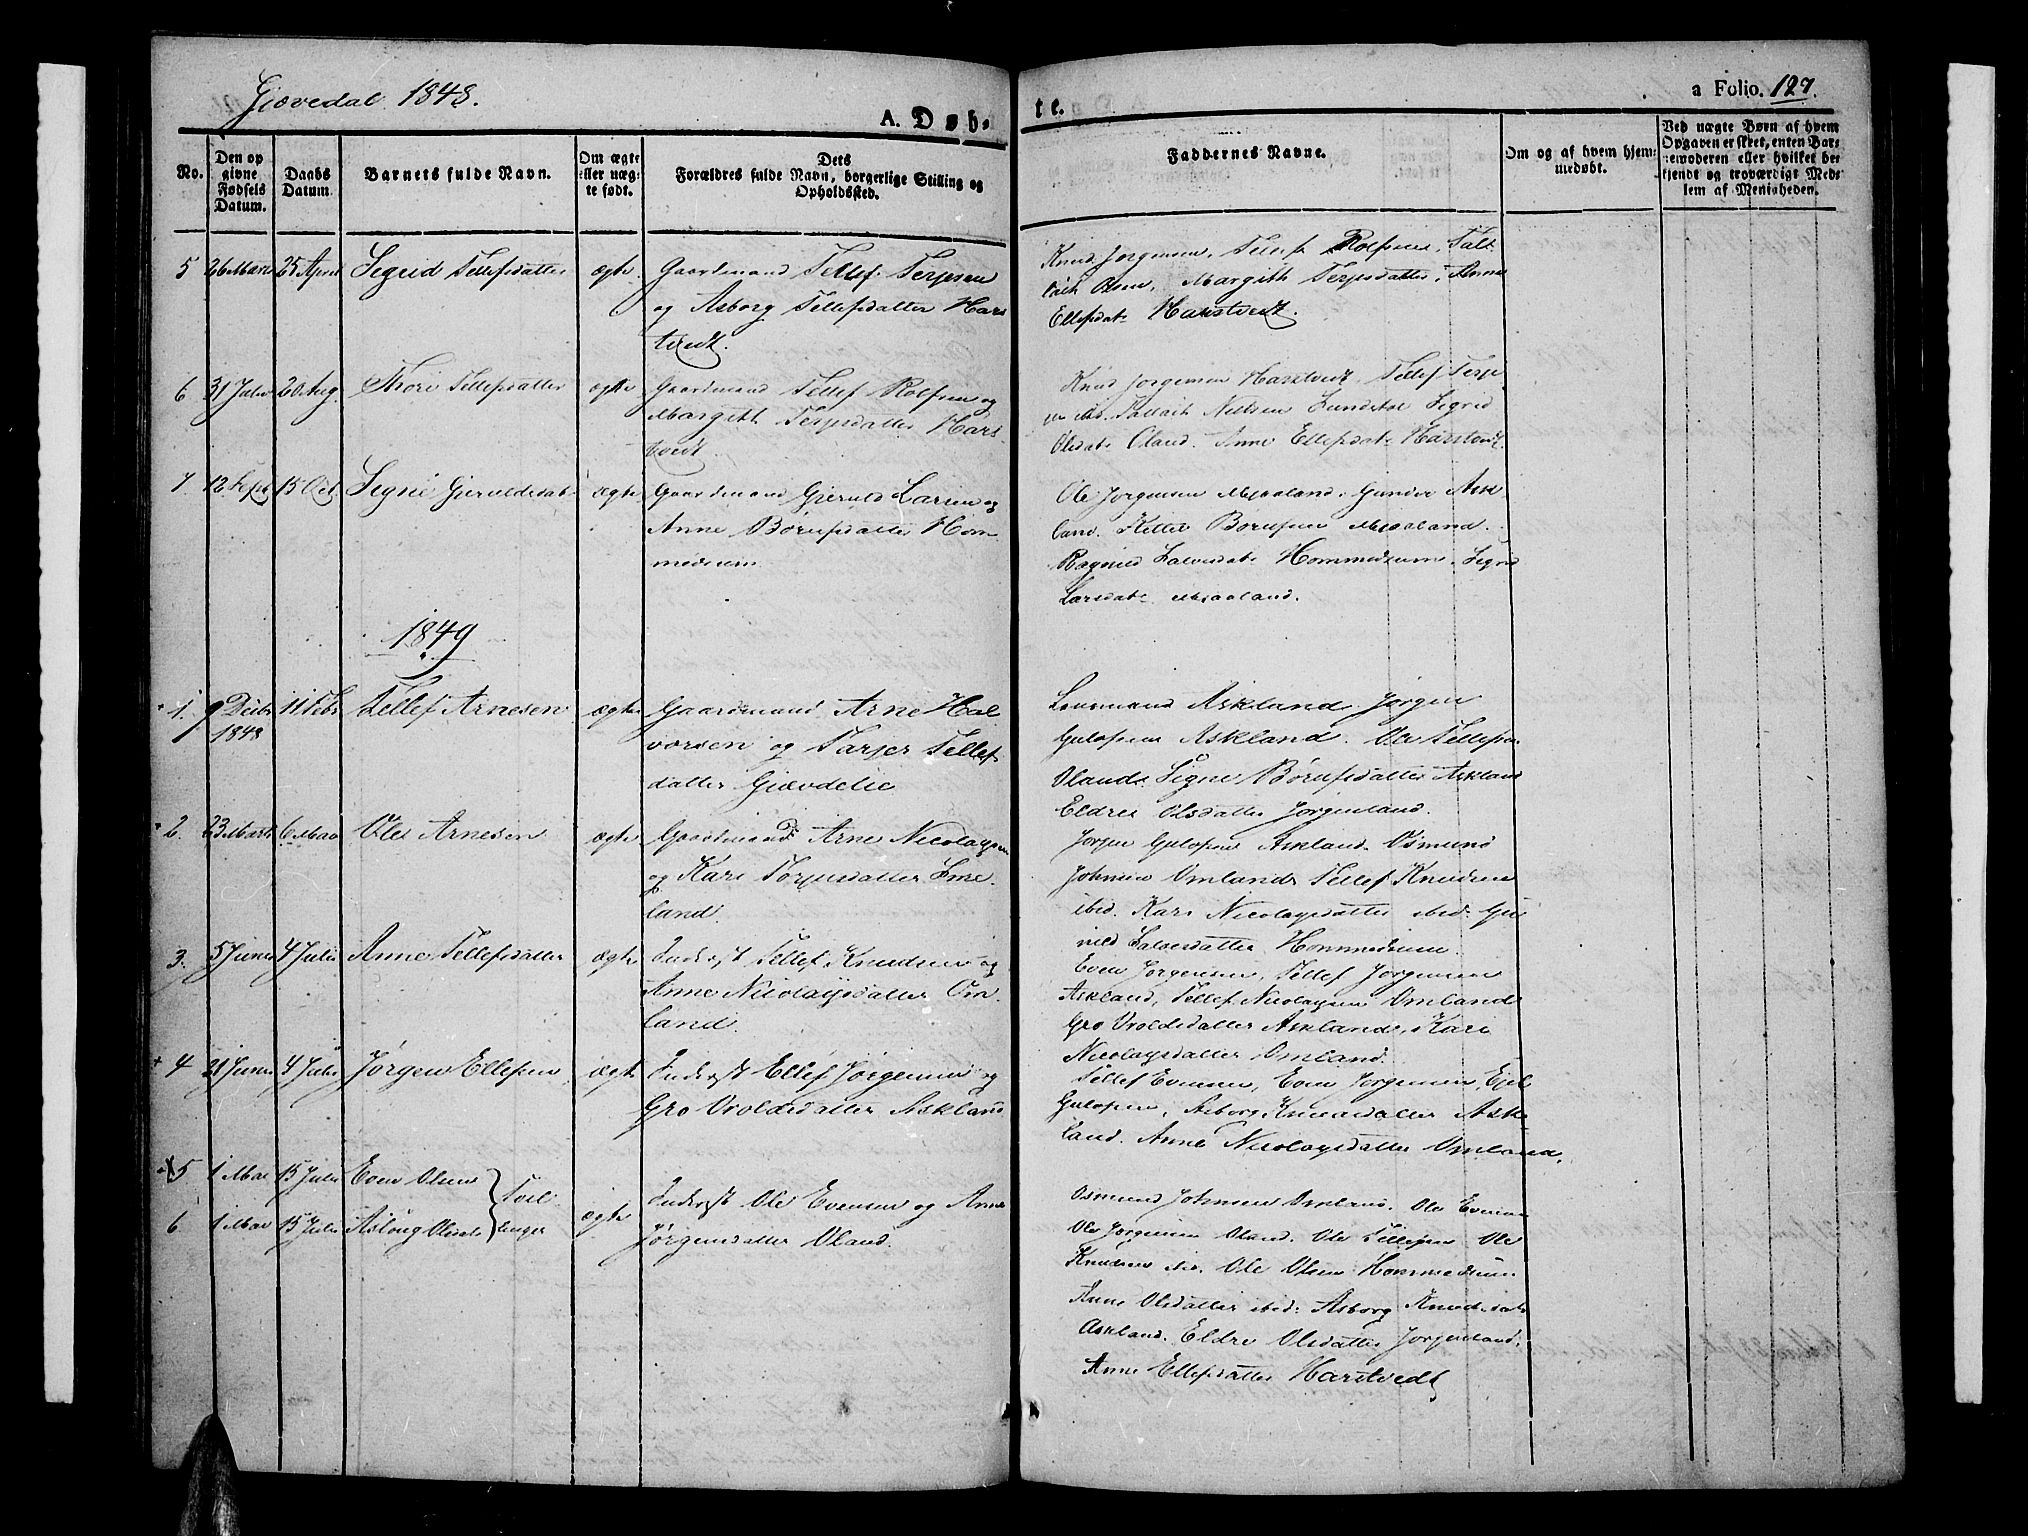 Gjøvedal 1848.
a Folio. 127.
A. Døb-
te.
No.
Den op
givne
Fødsels
Datum.
Daabs
Datum
Barnets fulde Navn.
Om ægte
eller uæg-
te født.
Dets
Forældres fulde Navn, borgerlige Stilling og
Opholdssted.
Faddernes Navne.
Om og af hvem hjem-
medøbt.
Ved uægte Børn af hvem
Opgaven er skeet, enten Bar-
nemoderen eller hvilket be-
kjendt og troværdigt Med-
lem af Menigheden.
5 26 Marts 25 April Sigrid Tellefsdatter ægte Gaardmand Tellef Terjesen
og Asborg Tellefsdatter Hars
tvedt.
Knud Jørgensen, Tellef Rolfsen, Tall
ak Olsen, Margith Terjesdatter, Anne
Ellefsdat. Harstvedt.
6 31 Juli 20 Aug. Thore Tellefsdatter ægte Gaardmand Tellef Rolfsen og
Margith Terjesdatter Hars
tvedt.
Knud Jørgensen Harstvedt, Tellef Terje
Tallack Nielsen Lundstøl Sigrid
Olsdat. Oland. Anne Ellefsdat. Harstvedt.
7. 12 Sept 15 Oct Signe Gjeruldsdat. ægte Gaardmand Gjeruld Larsen og
Anne Børufsdatter Hom
medsum
Ole Jørgensen Mjaaland. Gunder Ask
land. Kittel Børufsen Mjaaland.
Ragnild Salvesdat. Hommedsum. Sigrid
Larsdat. Mjaaland.
1849
1. 9 Decbr 11 Febr Tellef Arnesen ægte Gaardmand Arne Hal
1848
vorsen og Tarjer Tellefs
datter Gjøvdelie
Lensmand Askland Jørgen
Gulofsen Askland. Ole Tellefsen
Oland. Signe Børufsdatter Askland
Eldrei Olsdatter Jørgenland.
2. 23 Marts 6 Mai Ole Arnesen ægte Gaardmand Arne Nicolaysen
og Kari Torjusdatter Eme
land.
Jørgen Gulofsen Askland. Osmund
Johnsen Omland. Tellef Knudsen
ibid. Kari Nicolaysdatter ibid. Gu
nild Salvesdatter Hommedsum.
3. 5 Juni 4 Juli Anne Tellefsdatter ægte Inderst Tellef Knudsen og
Anne Nicolaysdatter Om
land.
Even Jørgensen, Tellef Jørgensen
Askland, Tellef Nicolaysen Omland
Gro Uroldsdatter Askland, Kari
Nicolaysdatter Omland.
4 21 Juni 4 Juli Jørgen Ellefsen ægte Inderst Ellef Jørgensen og
Gro Uroldsdatter Askland
Tellef Evensen, Even Jørgensen, Ejel
Gulofsen, Asborg Knudsdatter Ask
land. Anne Nicolaysdatter Omland.
5 1 Mai 15 Juli Even Olsen
6. 1 Mai 15 Juli Aslaug Olsdat. Tvil
linger
ægte Inderst Ole Evensen og Anne
Jørgensdatter Oland.
Osmund Johnsen Omland. Ole Evensen
Ole Jørgensen Oland. Ole Tellefsen Ole
Knudsen ibid. Ole Olsen Hommedsum
Anne Olsdatter ibid. Asborg Knudsdat.
Askland. Eldre Olsdatter Jørgenland.
Anne Ellefsdatter Harstvedt